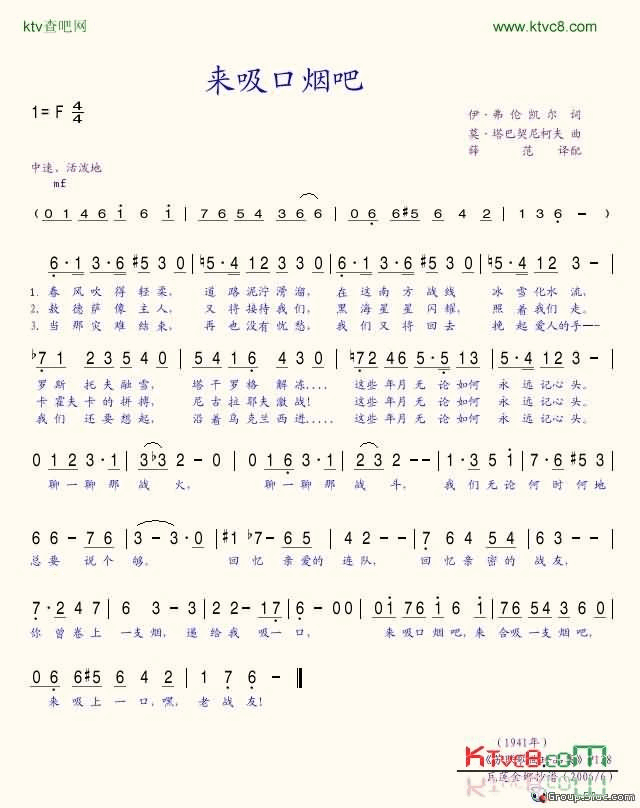 ktv查吧网 www.ktvc8.com
来吸口烟吧
1= F 4/4
伊·弗伦凯尔 词
莫·塔巴契尼柯夫 曲
薛 范 译配
中速、活泼地
mf
( 0 1 4 6 6 i 6 i | 7 6 5 4 3 6 6 | 0 6 6 #5 6 4 2 | 1 3 6 - )
6·1 3·6 #5 3 0 | ♮5·4 1 2 3 0 | 6·1 3·6 #5 3 0 | ♮5·4 1 2 3 - |
1. 春风吹得轻柔, 道路泥泞滑溜, 在这南方战线 冰雪化水流,
2. 敖德萨像主人, 又将接待我们, 黑海星星闪耀, 照着我们走。
3. 当那灾难结束, 再也没有忧愁, 我们又将回去 挽起爱人的手——
♭7 1 2 3 5 4 0 | 2 1 2 3 4 0 | ♮7 2 4 6 5·5 | 4 2 1 3 0 |
罗斯托夫融雪, 塔干罗格解冻.... 这些年月无论如何 永远记心头。
卡霍夫卡的拼搏, 尼古拉耶夫激战! 这些年月无论如何 永远记心头。
我们还要想起, 沿着乌克兰西进..... 这些年月无论如何 永远记心头。
0 1 2 3·1 | 3 ♭3 2 - 0 | 0 1 6 3·1 | 2 3 2 - | 1·3 5 i | 7·6 #5 3 |
聊一聊那战火, 聊一聊那战斗, 我们无论何时何地
6 6 - 7 6 | 3 - 3·0 | #1 ♭7- 6 5 | 4 2 - - | 7 6 4 5 4 | 6 3 - - |
总要说个够。 回忆亲爱的连队, 回忆亲密的战友,
7·2 4 7 | 6 3 - 3 | 2 2 - 1 7 | 6 - 0 0 | 0 1 7 6 1 6 | 7 6 5 4 3 6 0 |
你曾卷上一支烟, 递给我吸一口, 来吸口烟吧, 来合吸一支烟吧,
0 6 6 #5 6 4 2 | 1 7 6 - ‖
来吸上一口,嘿, 老战友!
(1941年)
KTvc8.com